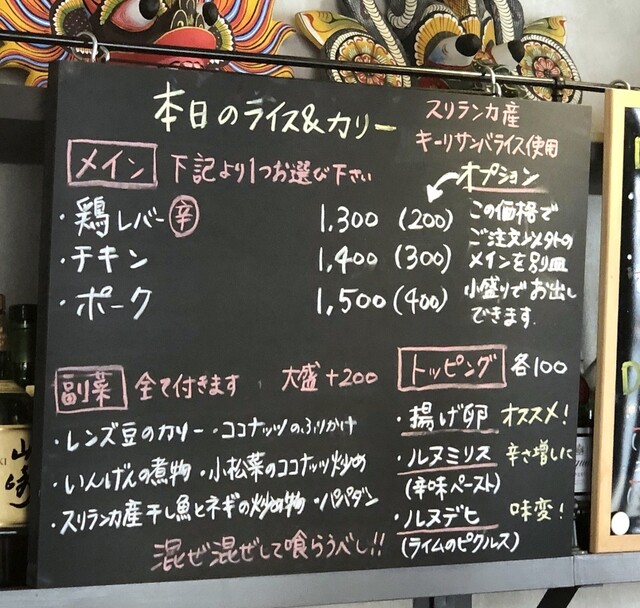 本日のライス&カリー
スリランカ産
キーリサンバライス使用
メイン 下記より1つお選び下さい
オプション
・鶏レバー 辛 1,300 (200)
・チキン 1,400 (300)
・ポーク 1,500 (400)
この価格で
ご注文以外の
メインを別皿
小盛りでお出し
できます.
副菜 全て付きます 大盛+200
・レンズ豆のカリー・ココナッツのふりかけ
・いんげんの煮物・小松菜のココナッツ炒め
・スリランカ産干し魚とネギの炒め物・パパダン
トッピング 各100
・揚げ卵 オススメ!
・ルヌミリス 辛さ増しに
(辛味ペースト)
・ルヌデヒ 味変!
(ライムのピクルス)
混ぜ混ぜして喰らうべし!!
山崎